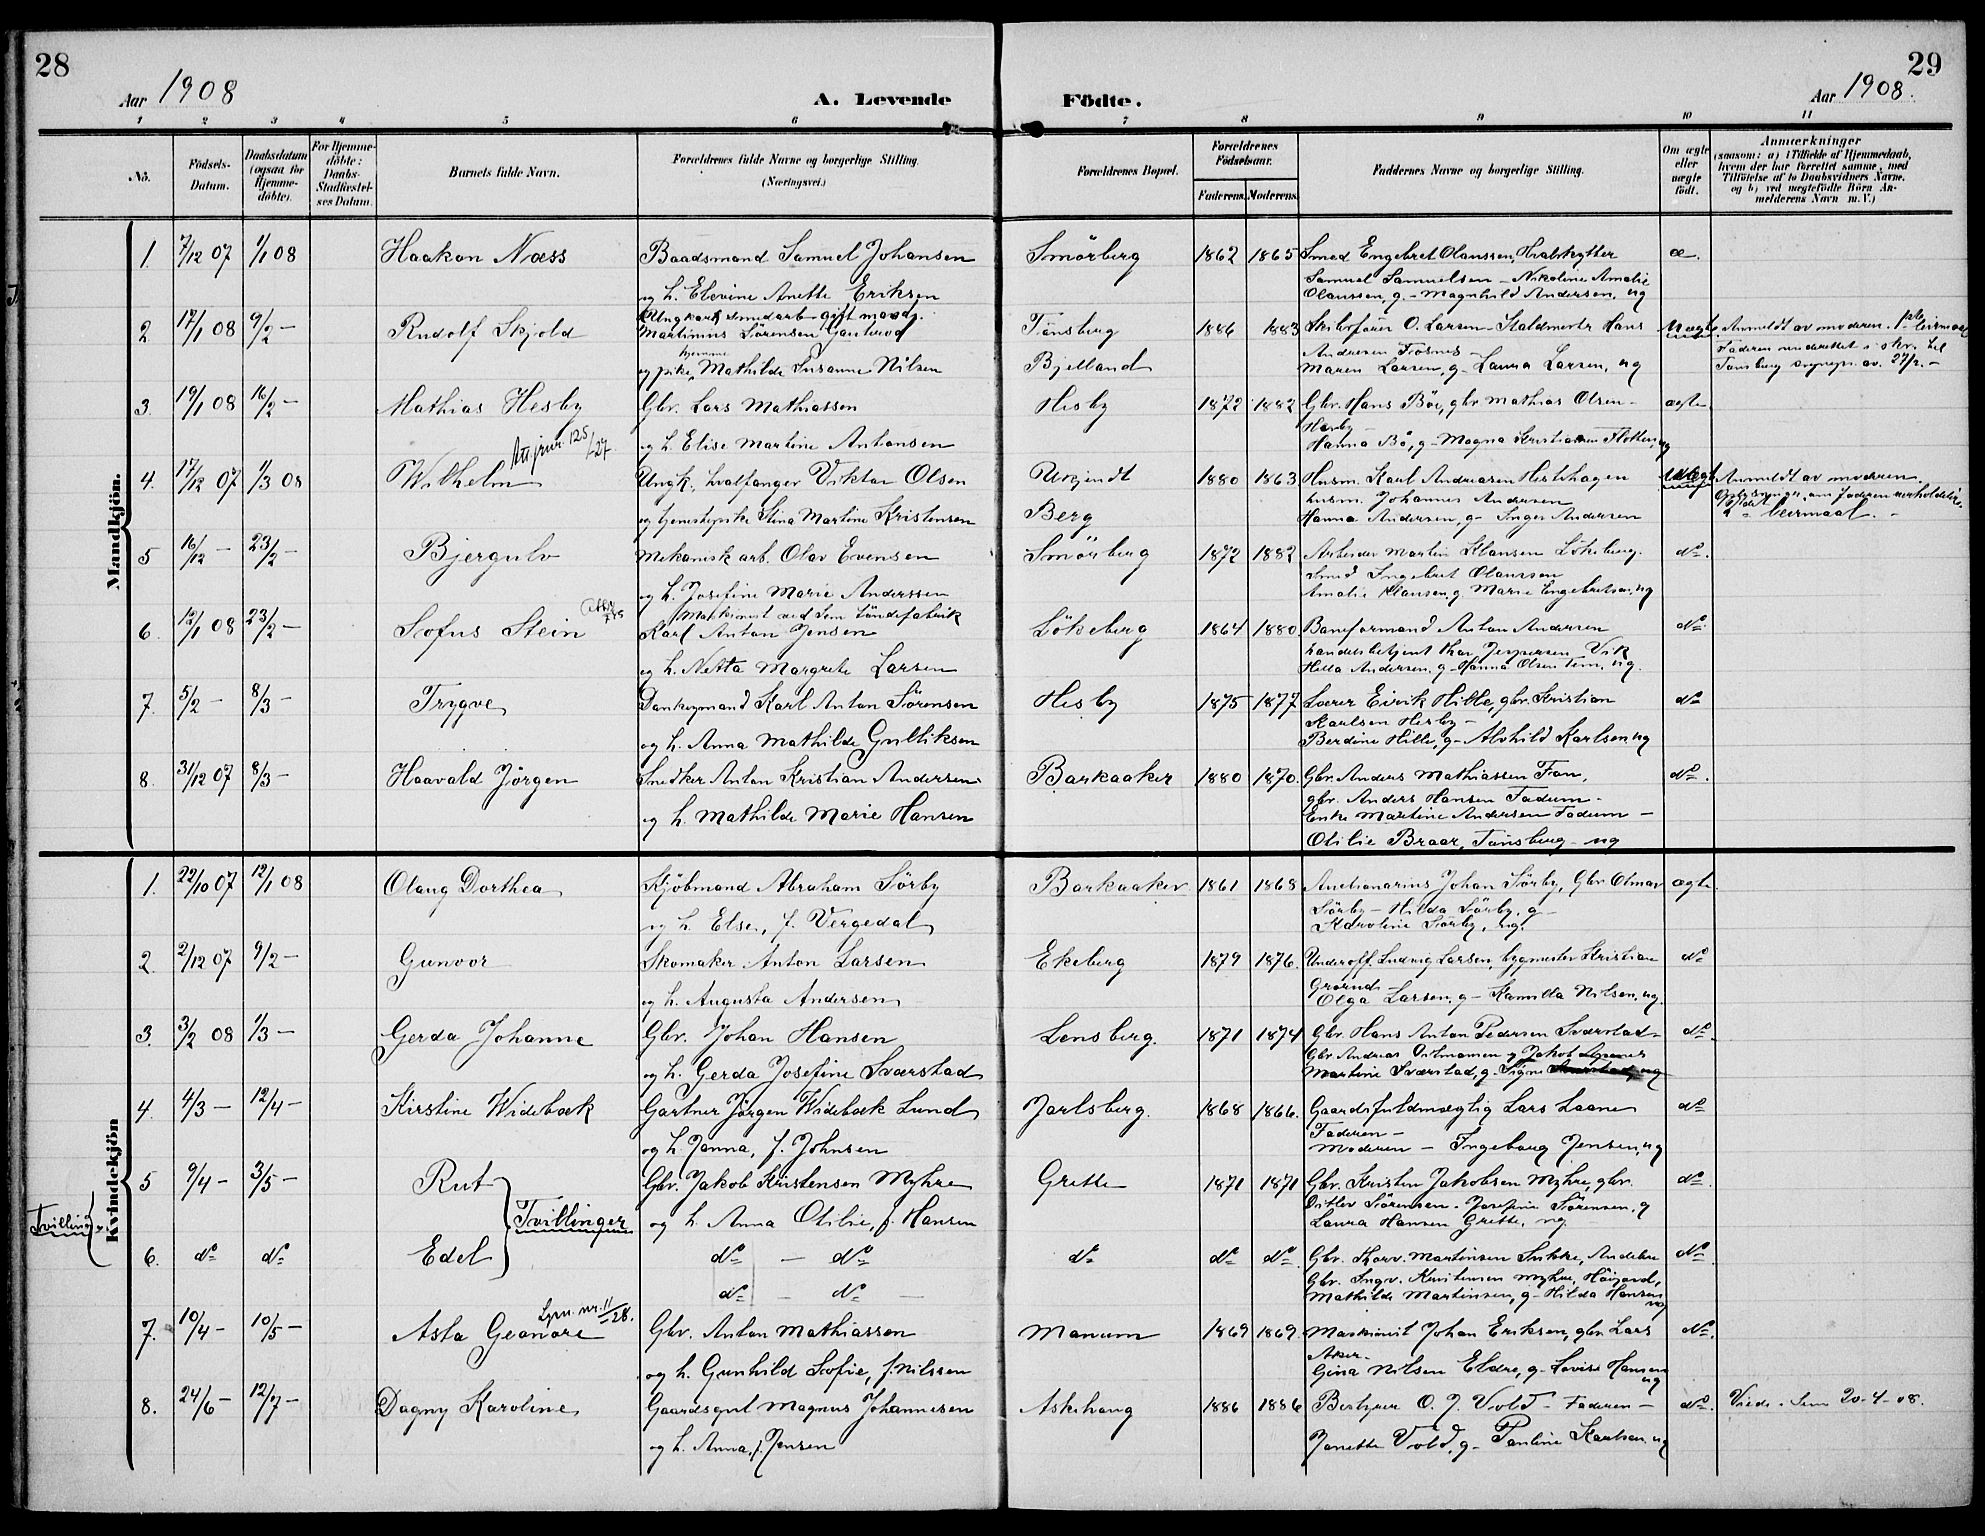 28
Aar 1908
A. Levende Födte.
Aar 1908.
29
1 2 3 4 5 6 7 8 9 10 11
No.
Födsels-Datum.
Daabsdatum (ogsaa for Hjemme-döbte).
For Hjemme-döbte: Daabs-Stadfæstel-ses Datum.
Barnets fulde Navn.
Forældrenes fulde Navne og borgerlige Stilling. (Næringsvei.)
Forældrenes Bopæl.
Forældrenes Födselsaar.
Faderens. Moderens.
Faddernes Navne og borgerlige Stilling.
Om ægte eller uægte födt.
Anmærkninger (saasom: a) i Tilfælde af Hjemmedaab, hvem der har forrettet samme, med Tilföielse af to Daabsvidners Navne. og b) ved uægtefödte Börn An-melderens Navn m. V.)
Mandkjön.
1. 7/12 07 1/1 08 Haakon Næss Baadsmand Samuel Johansen Smörberg 1862 1865 Smed Engebret Olaussen, Hvalskytter æ.
og h. Elevine Anette Eriksen Samuel Samuelsen - Nikoline Amalie
Olaussen, g. - Magnhild Andersen, ug
2. 17/1 08 9/2 - Rudolf Skjold Ungkarl smedarb. gift mand
Martinius Sörensen Tönsberg 1886 1883 Skibsförer O. Larsen - Staldmester Hans Uægte Anmeldt av moderen. 1ste leiermaal
og pike hjemme Mathilde Susanne Nilsen Bjelland Andersen Fosnes - Maren Larsen, g - Laura Larsen, ug Faderen underrettet i skr. til Tønsberg sognepr. av. 27/2. -
3. 19/1 08 16/2 - Mathias Hesby Gbr. Lars Mathiassen Hesby 1872 1882 Gbr. Hans Böe, gbr Mathias Olsen - ægte
og h. Elise Martine Antonsen Hesby - Hanna Bö, g - Magna Kristiansen Flatten, ug
Att. jrnr. 125/27.
4. 17/12 07 1/3 08 Wilhelm Ungk., hvalfanger Viktor Olsen Ukjendt 1880 1863 Husm. Karl Andreasen Hesthagen Uægte Anmeldt av moderen
og tjenestepike Stina Martine Kristensen Berg husm. Johannes Andersen
Hanna Andersen, g - Inger Andersen 2 leiermaal. -
5 16/12 - 23/2 - Bjergulv Mekanisk arb. Olav Evensen Smörberg 1872 1882 Arbeider Martin Klausen Lökeberg. do.
og h. Josefine Marie Anderssen Smed Ingebret Olaussen
Amalie Klausen, g Marie Engebretsen, ug
6. 12/1 08 23/2 - Sofus Stein Maskinist ved Sem Tændsfabrik
Karl Anton Jensen Lökeberg 1864 1880 Baneformand Anton Andersen do
og h. Netta Margrete Larsen handelsbetjent Thor Jespersen Vik
Hilda Andersen, g - Hanna Olsen Sem, ug.
7. 5/2 - 8/3 - Trygve Dankeymand Karl Anton Sörensen Hesby 1875 1877 Lærer Eirik Hille, gbr. Kristian do
og h. Anna Mathilde Gulliksen Karlsen Hesby -
Berdine Hille, g - Alvhild Karlsen, ug
8. 31/12 07 8/3 - Haavald Jörgen Snedker Anton Kristian Andersen Barkaaker 1880 1870. Gbr. Anders Mathiassen Fon, do.
og h. Mathilde Marie Hansen gbr. Anders Hansen Fadum -
Enke Martine Andersen Fadum -
Otilie Braar, Tönsberg - ug
Kvindekjön
1. 22/10 07 12/1 08 Olaug Dorthea Kjöbmand Abraham Sörby Barkaaker 1861 1868 Auctionarius Johan Sörby, Gbr Olmar ægte.
og h. Else, f. Vergedal Sörby - Hilda Sörby, g -
Karoline Sörby, ug.
2. 2/12 07 9/2 - Gunvor Skomaker Anton Larsen Ekeberg 1879 1876. Underoff. Ludvig Larsen, bygmester Kristian do
og h. Augusta Andersen Olga Larsen, g - Kamilla Nilsen, ug.
3. 3/2 08 1/3 - Gerda Johanne Gbr. Johan Hansen Lensberg. 1871 1874 Gbr. Hans Anton Pedersen Sværstad - do.
og h. Gerda Josefine Sværstad Gbr Andreas g Jakob
Martine Sværstad, g - Signe ug
4. 4/3 - 12/4 - Kirstine Widebæk Gartner Jörgen Widebæk Lund Jarlsberg. 1868 1866. Gaardsfuldmægtig Lars Laane do
og h. Janna, f. Johnsen Faderen -
Moderen - Ingeborg Jensen, ug
5 9/4 - 3/5 - Rut Gbr. Jakob Kristensen Myhre Grette 1871 1871 Gbr. Kristen Jakobsen Myhre, gbr. do.
Tvillinger og h. Anna Otilie, f. Hansen Ditlev Sörensen - Josefine Sörensen, g
Laura Hansen Grette, ug
Tvillinger
6. do do Edel do - do do do do Gbr. Thorv. Martinsen Sukke, Andebu do
do - do - Gbr. Ingv. Kristensen Myhre, Höijord,
Mathilde Martinsen, g - Hilda Hansen ug
Lpn. nr. 11/28.
7. 10/4 - 10/5 - Asta Geanore Gbr. Anton Mathiassen Manum 1869 1869. Maskinist Johan Eriksen, gbr. Lars do.
og h. Gunhild Sofie, f. Nilssen Aker -
Gina Nilsen Eldre, g - Lovise Hansen ug
8. 24/6 - 12/7 - Dagny Karoline Gaardsgut Magnus Johannesen Askehaug 1886 1886 Bestyrer O. J. Vold - Faderen - do. Viede i Sem 20-4-08.
og h. Anna, f. Jensen Janette Vold, g - Pauline Karlsen, ug